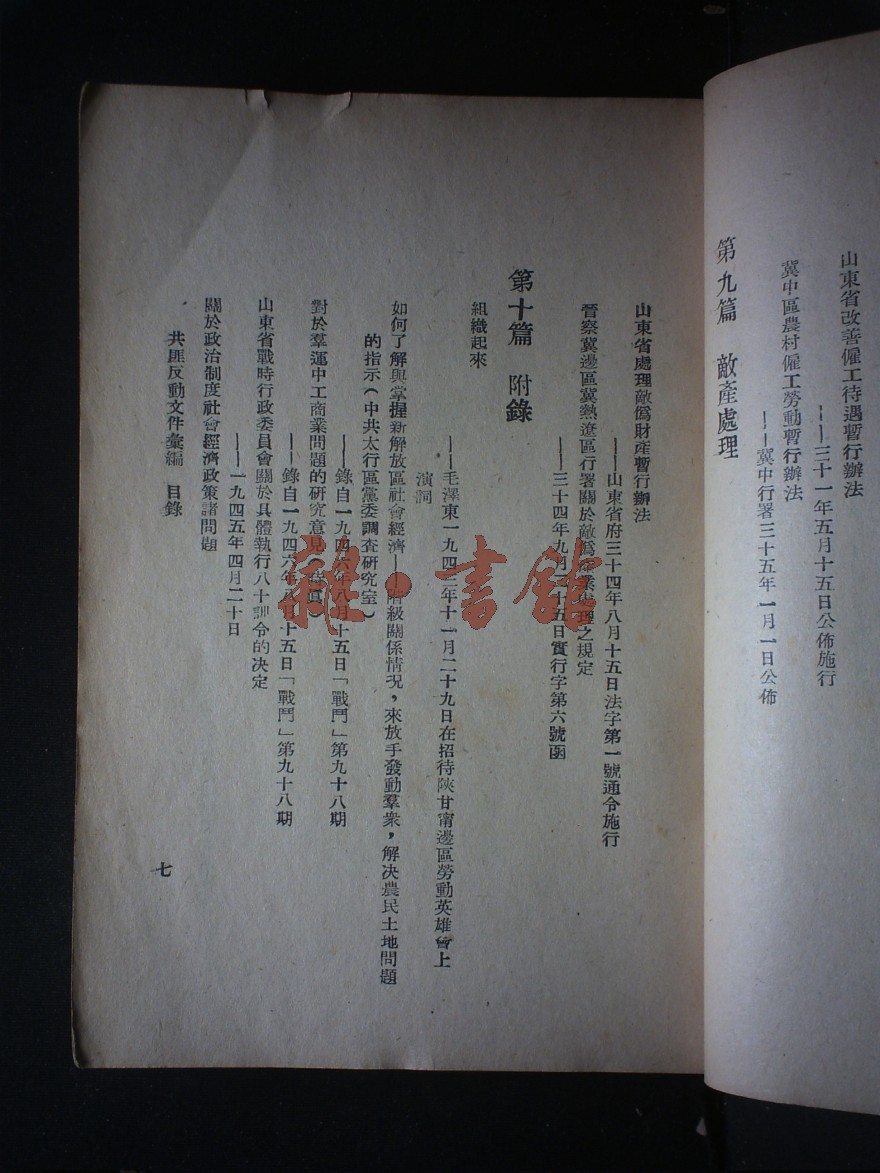 山東省改善僱工待遇暫行辦法
——三十一年五月十五日公佈施行
冀中區農村僱工勞動暫行辦法
——冀中行署三十五年一月一日公佈
第九篇　敵產處理
山東省處理敵僞財產暫行辦法
——山東省府三十四年八月十五日法字第一號通令施行
晉察冀邊區冀熱遼區行署關於敵僞產業處理之規定
——三十四年九月二十五日實行字第六號函
第十篇　附錄
組織起來
——毛澤東一九四三年十一月二十九日在招待陝甘甯邊區勞動英雄會上
演詞
如何了解與掌握新解放區社會經濟——階級關係情況，來放手發動羣衆，解決農民土地問題
的指示（中共太行區黨委調查研究室）
——錄自一九四六年八月十五日「戰鬥」第九十八期
對於羣運中工商業問題的研究意見（）
——錄自一九四六年八月十五日「戰鬥」第九十八期
山東省戰時行政委員會關於具體執行八十訓令的決定
——一九四五年四月二十日
關於政治制度社會經濟政策諸問題
共匪反動文件彙編　目錄
七
雜·書館